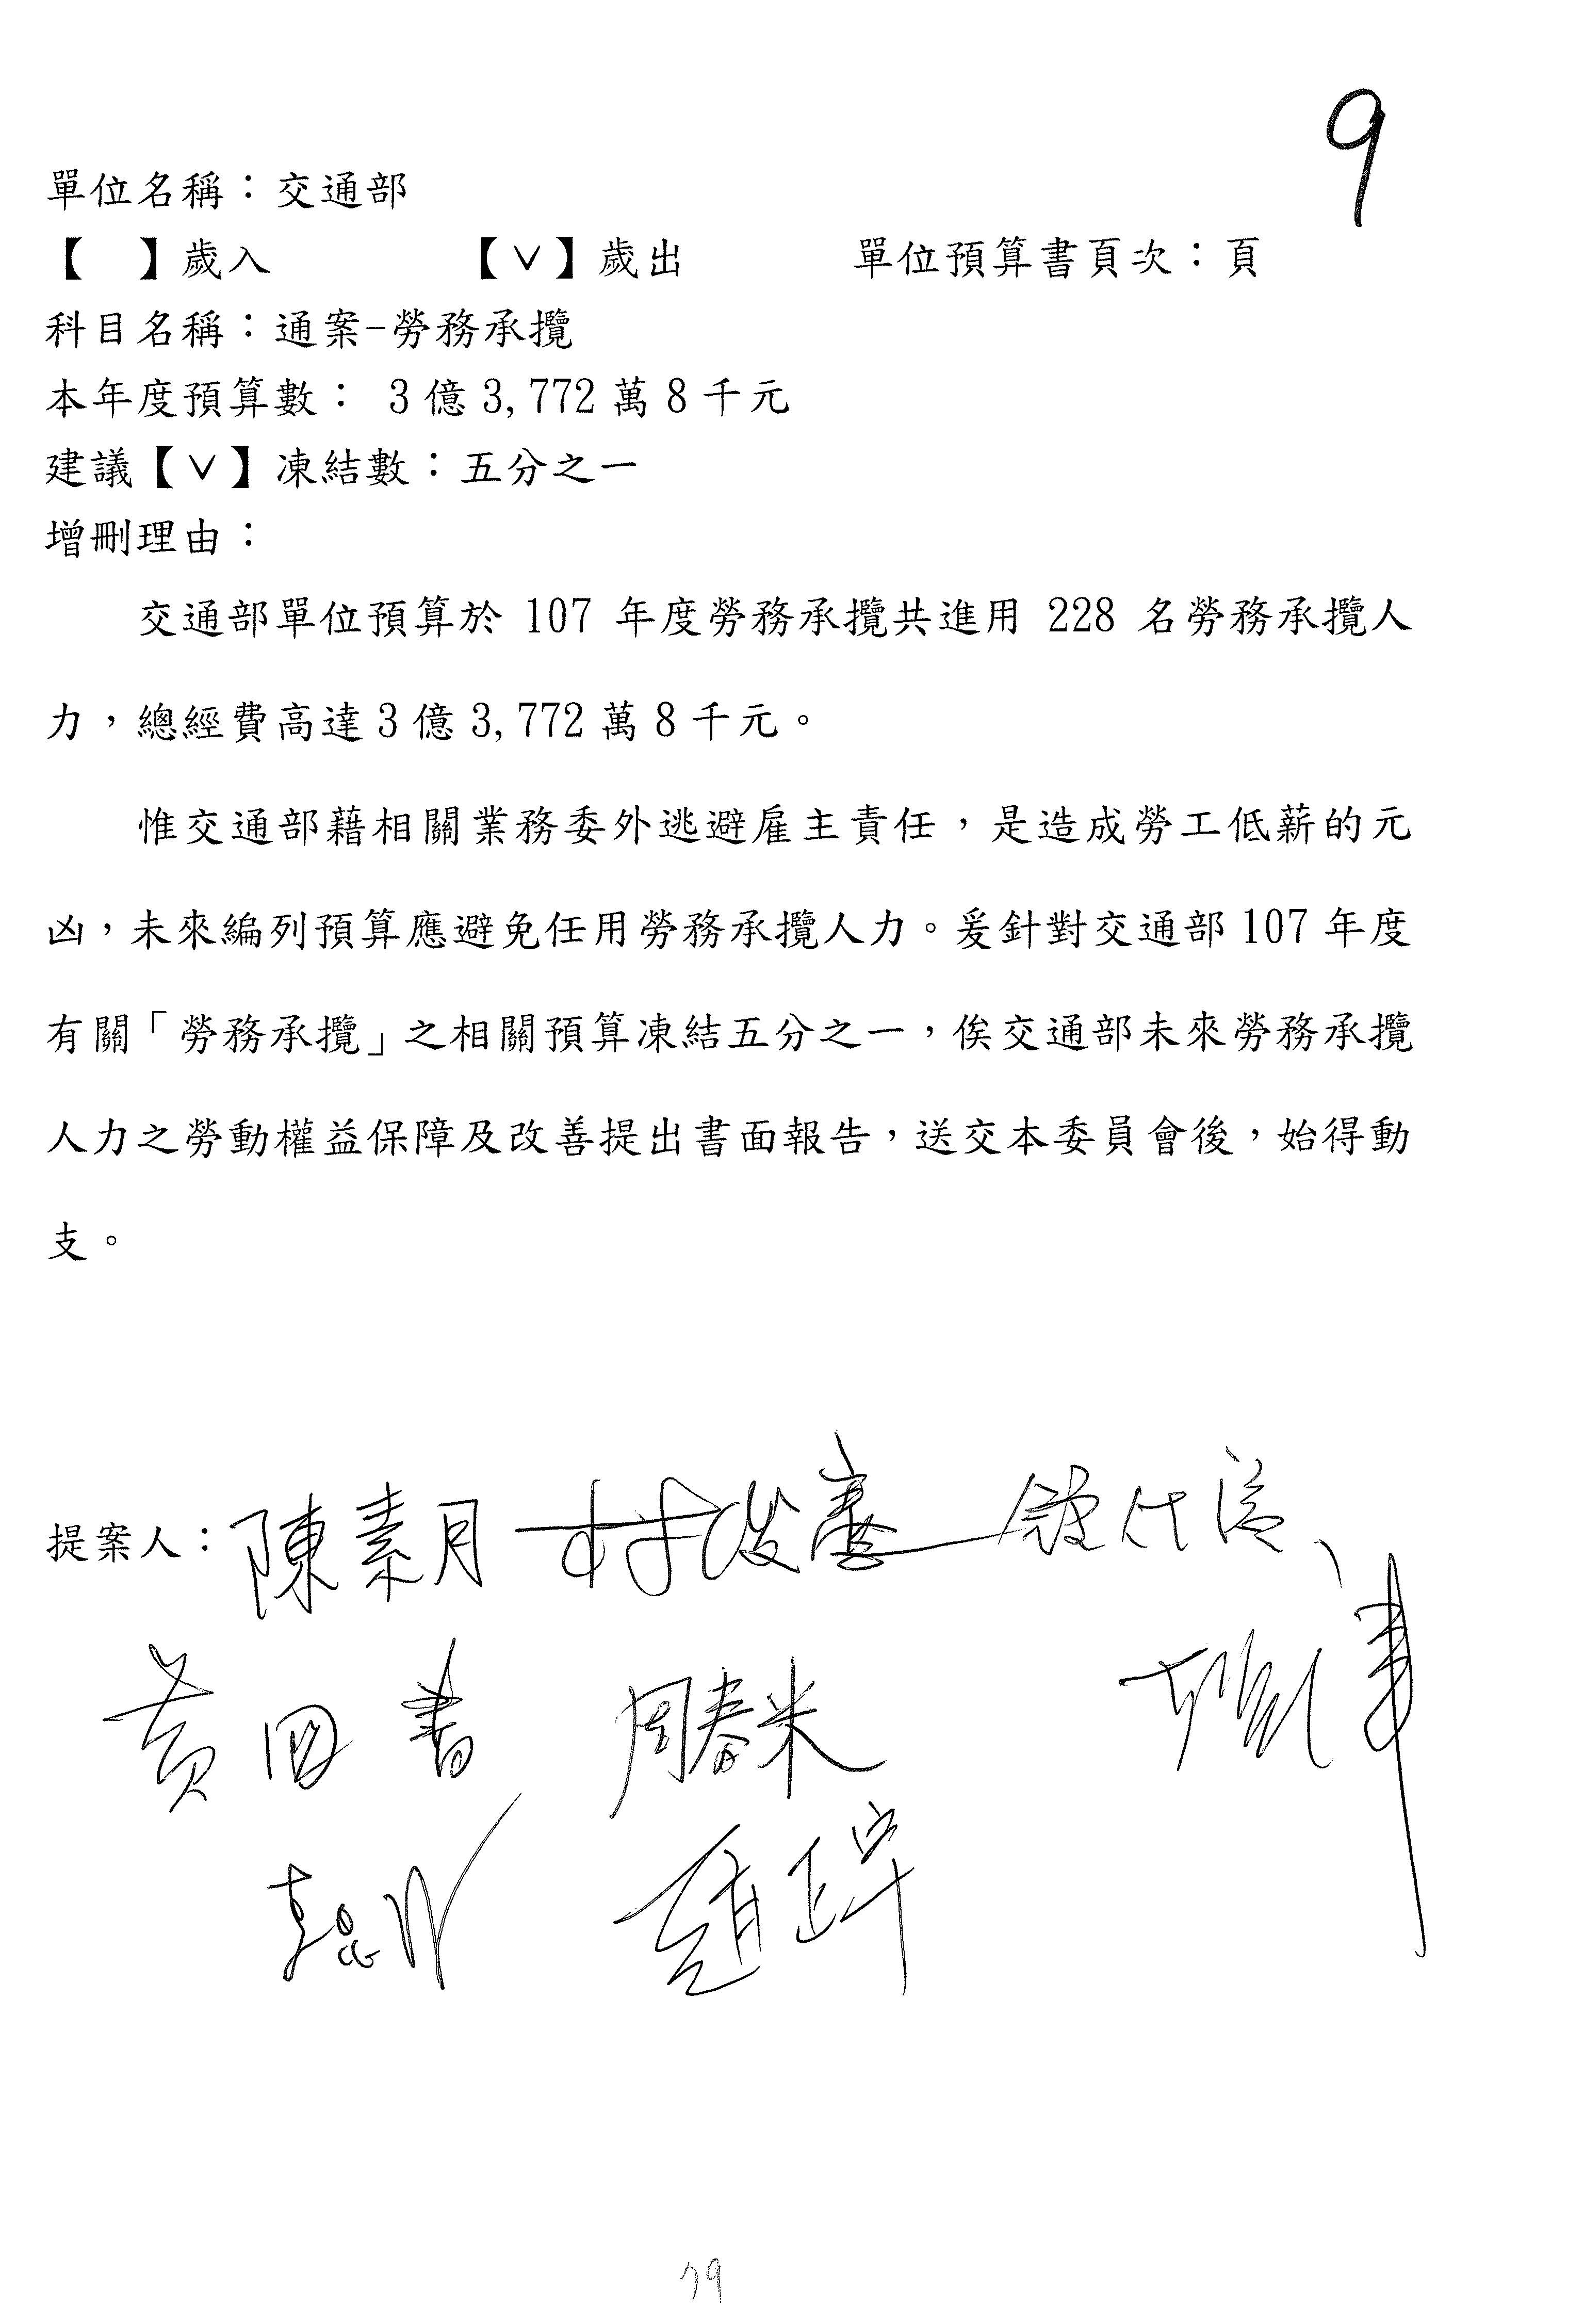 9
單位名稱：交通部
【　】歲入　【∨】歲出　單位預算書頁次：頁
科目名稱：通案-勞務承攬
本年度預算數： 3 億 3,772 萬 8 千元
建議【∨】凍結數：五分之一
增刪理由：
交通部單位預算於 107 年度勞務承攬共進用 228 名勞務承攬人
力，總經費高達 3 億 3,772 萬 8 千元。
惟交通部藉相關業務委外逃避雇主責任，是造成勞工低薪的元
凶，未來編列預算應避免任用勞務承攬人力。爰針對交通部 107 年度
有關「勞務承攬」之相關預算凍結五分之一，俟交通部未來勞務承攬
人力之勞動權益保障及改善提出書面報告，送交本委員會後，始得動
支。
提案人：陳素月 林俊憲
黃國書 周春米
趙正宇
79